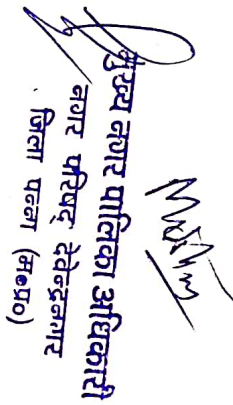 मुख्य नगर पालिका अधिकारी
नगर परिषद् देवेन्द्रनगर
जिला पन्ना (म०प्र०)